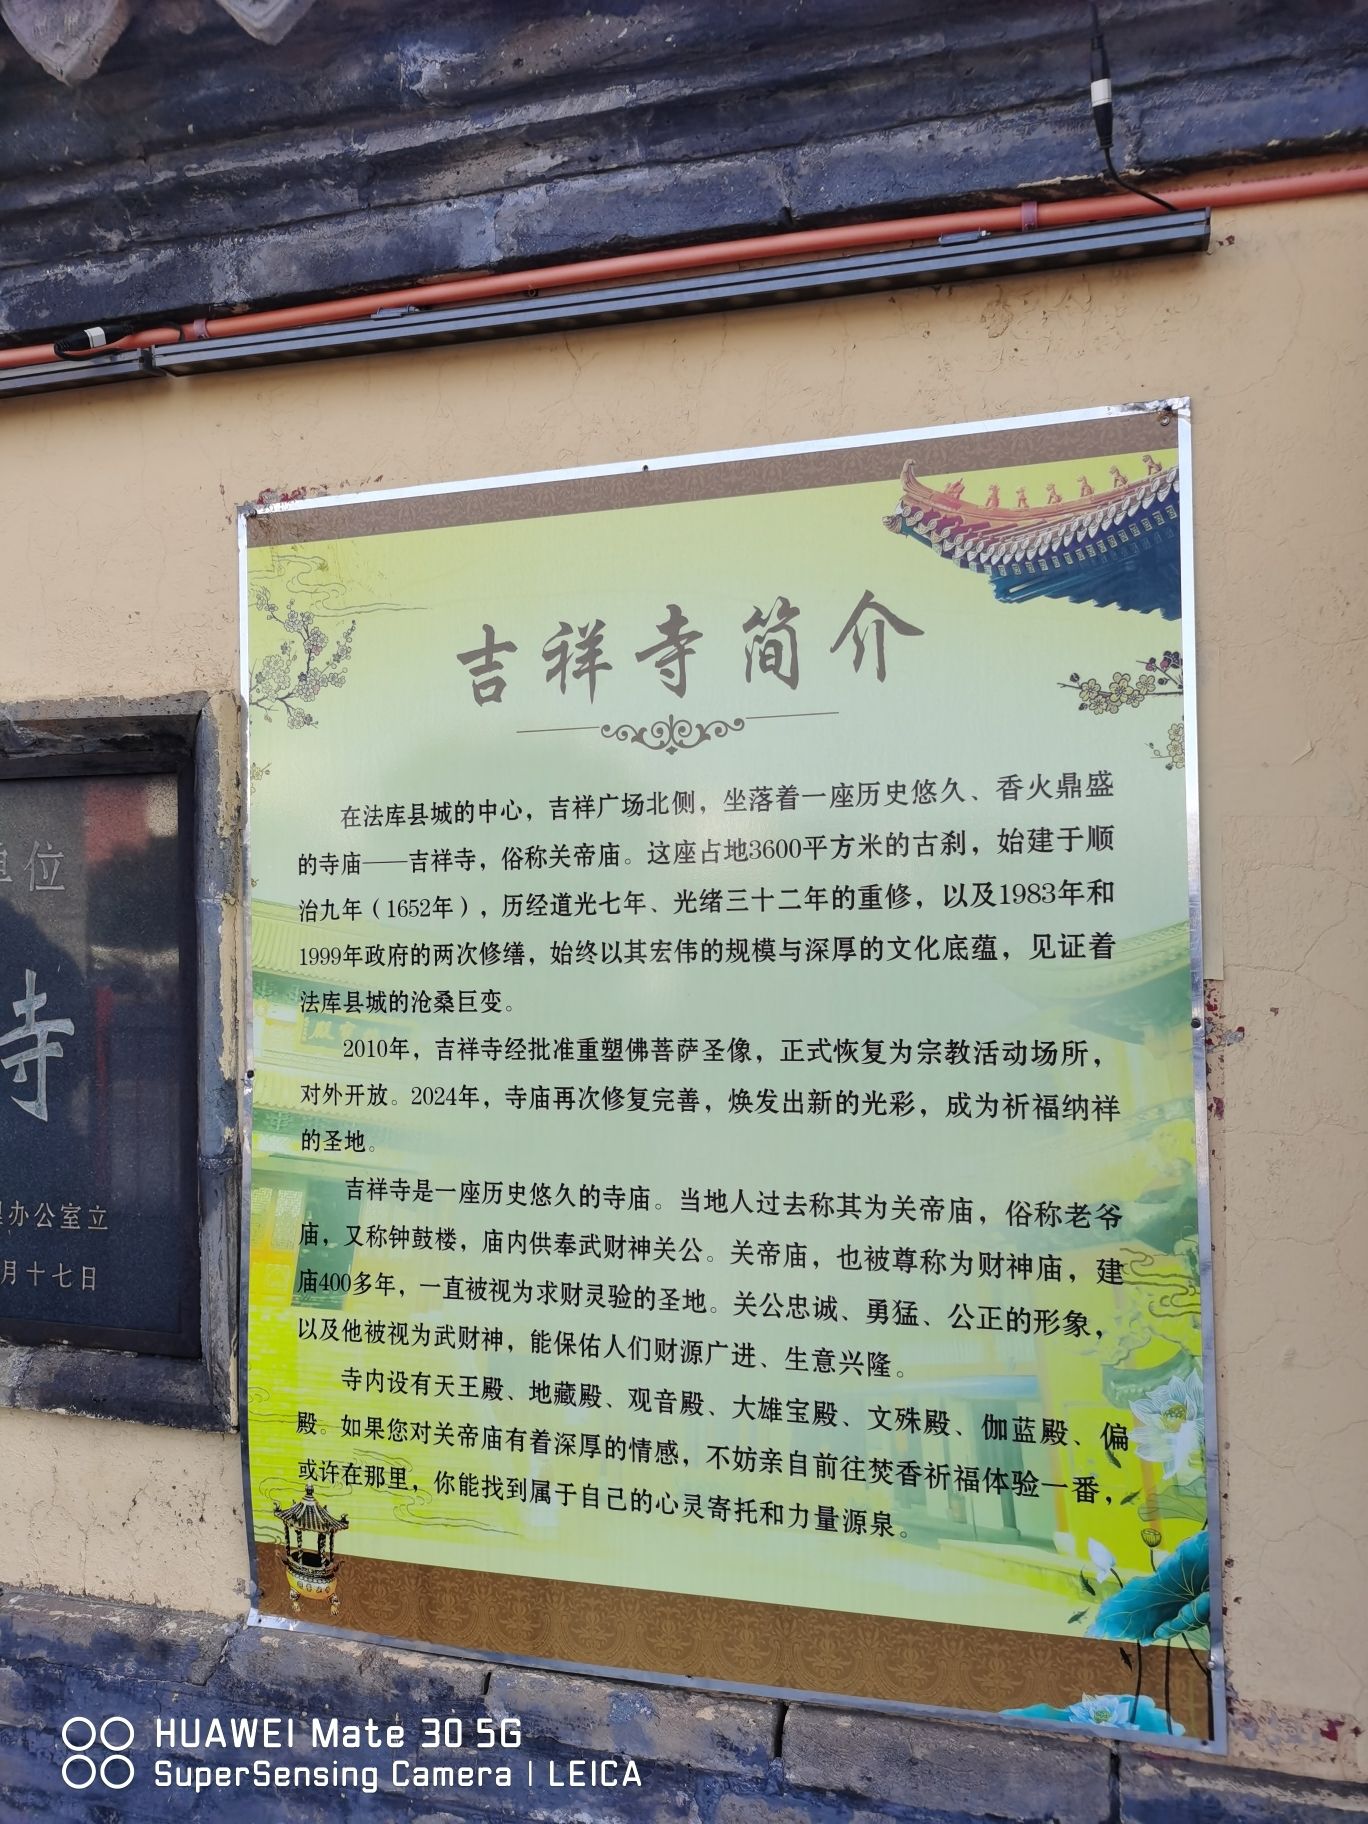 吉祥寺简介
在法库县城的中心，吉祥广场北侧，坐落着一座历史悠久、香火鼎盛
的寺庙——吉祥寺，俗称关帝庙。这座占地3600平方米的古刹，始建于顺
治九年（1652年），历经道光七年、光绪三十二年的重修，以及1983年和
1999年政府的两次修缮，始终以其宏伟的规模与深厚的文化底蕴，见证着
法库县城的沧桑巨变。
2010年，吉祥寺经批准重塑佛菩萨圣像，正式恢复为宗教活动场所，
对外开放。2024年，寺庙再次修复完善，焕发出新的光彩，成为祈福纳祥
的圣地。
吉祥寺是一座历史悠久的寺庙。当地人过去称其为关帝庙，俗称老爷
庙，又称钟鼓楼，庙内供奉武财神关公。关帝庙，也被尊称为财神庙，建
庙400多年，一直被视为求财灵验的圣地。关公忠诚、勇猛、公正的形象，
以及他被视为武财神，能保佑人们财源广进、生意兴隆。
寺内设有天王殿、地藏殿、观音殿、大雄宝殿、文殊殿、伽蓝殿、偏
殿。如果您对关帝庙有着深厚的情感，不妨亲自前往焚香祈福体验一番，
或许在那里，你能找到属于自己的心灵寄托和力量源泉。
单位
寺
办公室立
月十七日
HUAWEI Mate 30 5G
SuperSensing Camera | LEICA